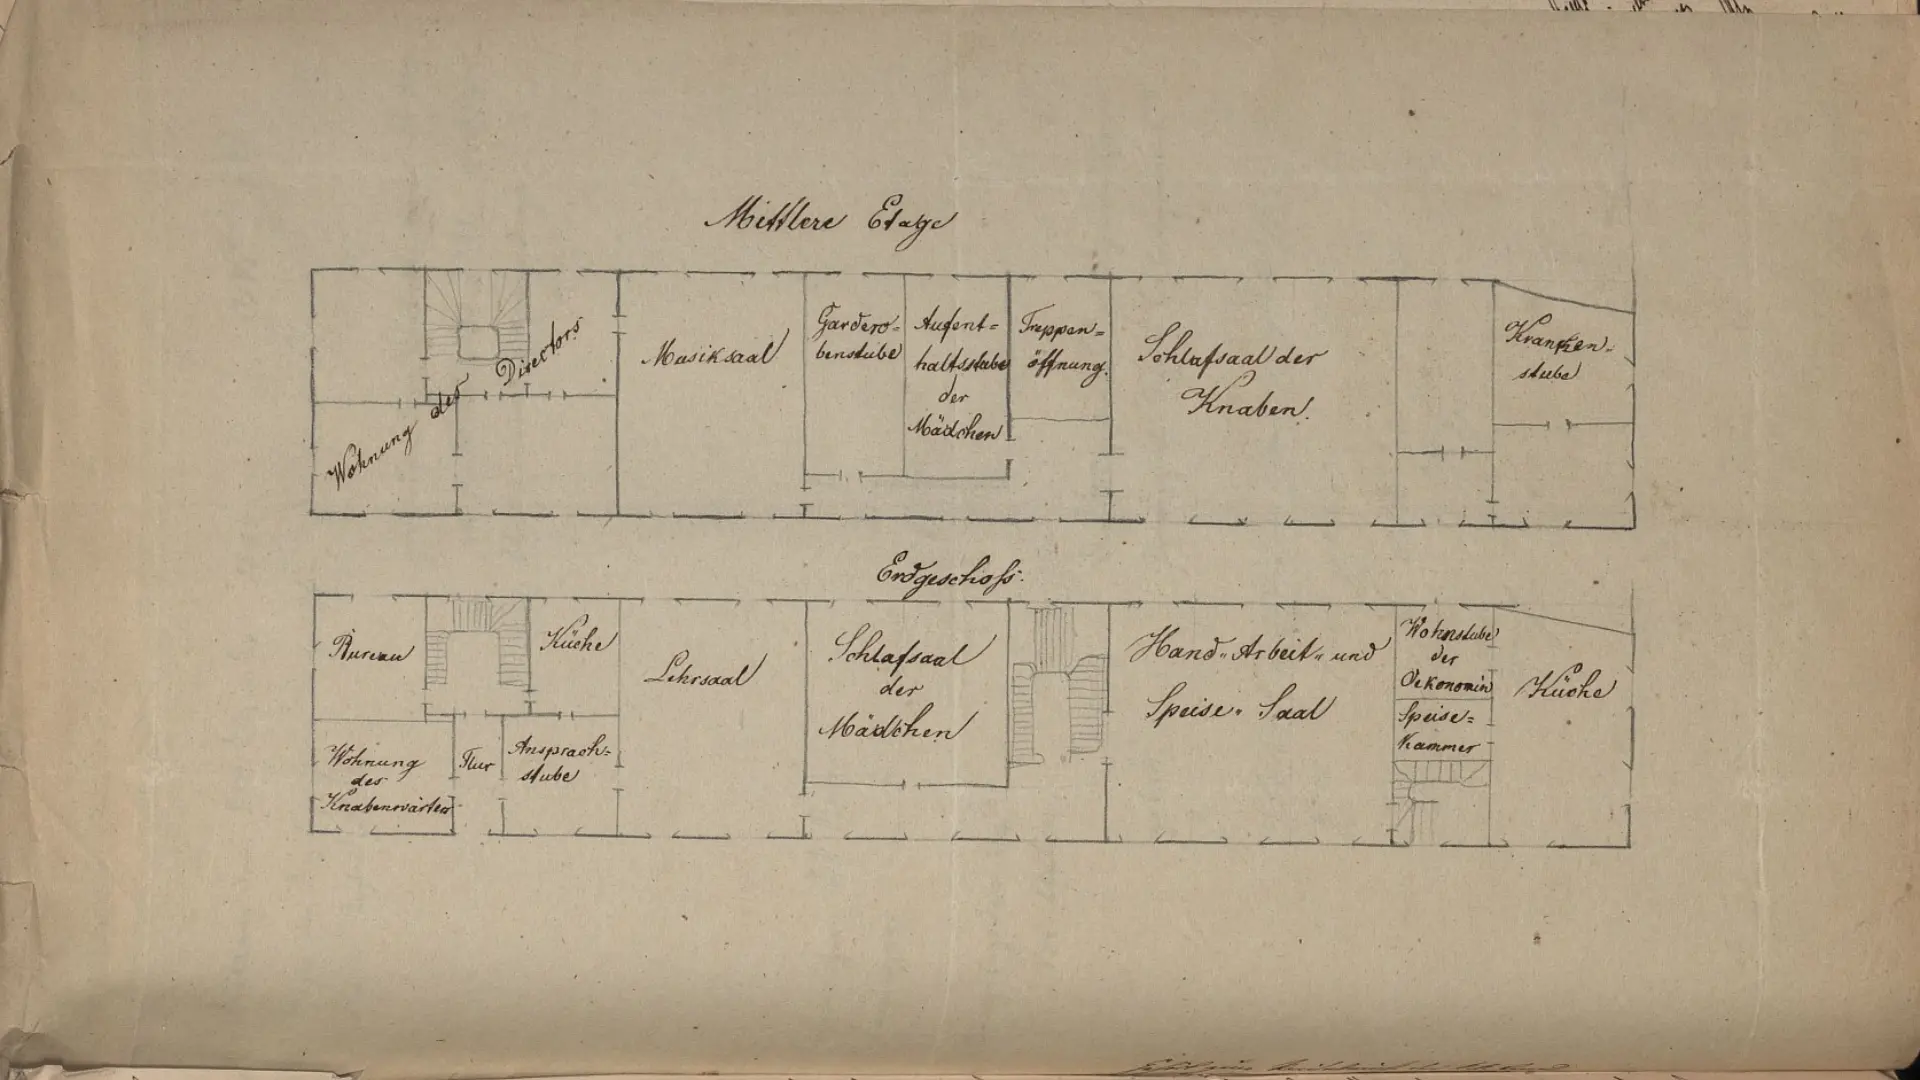 Mittlere Etage
Wohnung des Directors
Musiksaal
Gardero=
benstube
Aufent=
haltsstube
der
Mädchen
Treppen=
öffnung.
Schlafsaal der
Knaben.
Kranken=
stube
Erdgeschoß.
Bureau
Küche
Wohnung
des
Knabenwärters
Flur
Ansprach=
stube
Lehrsaal
Schlafsaal
der
Mädchen
Hand= Arbeit= und
Speise= Saal
Wohnstube
der
Oekonomin
Speise=
Kammer
Küche